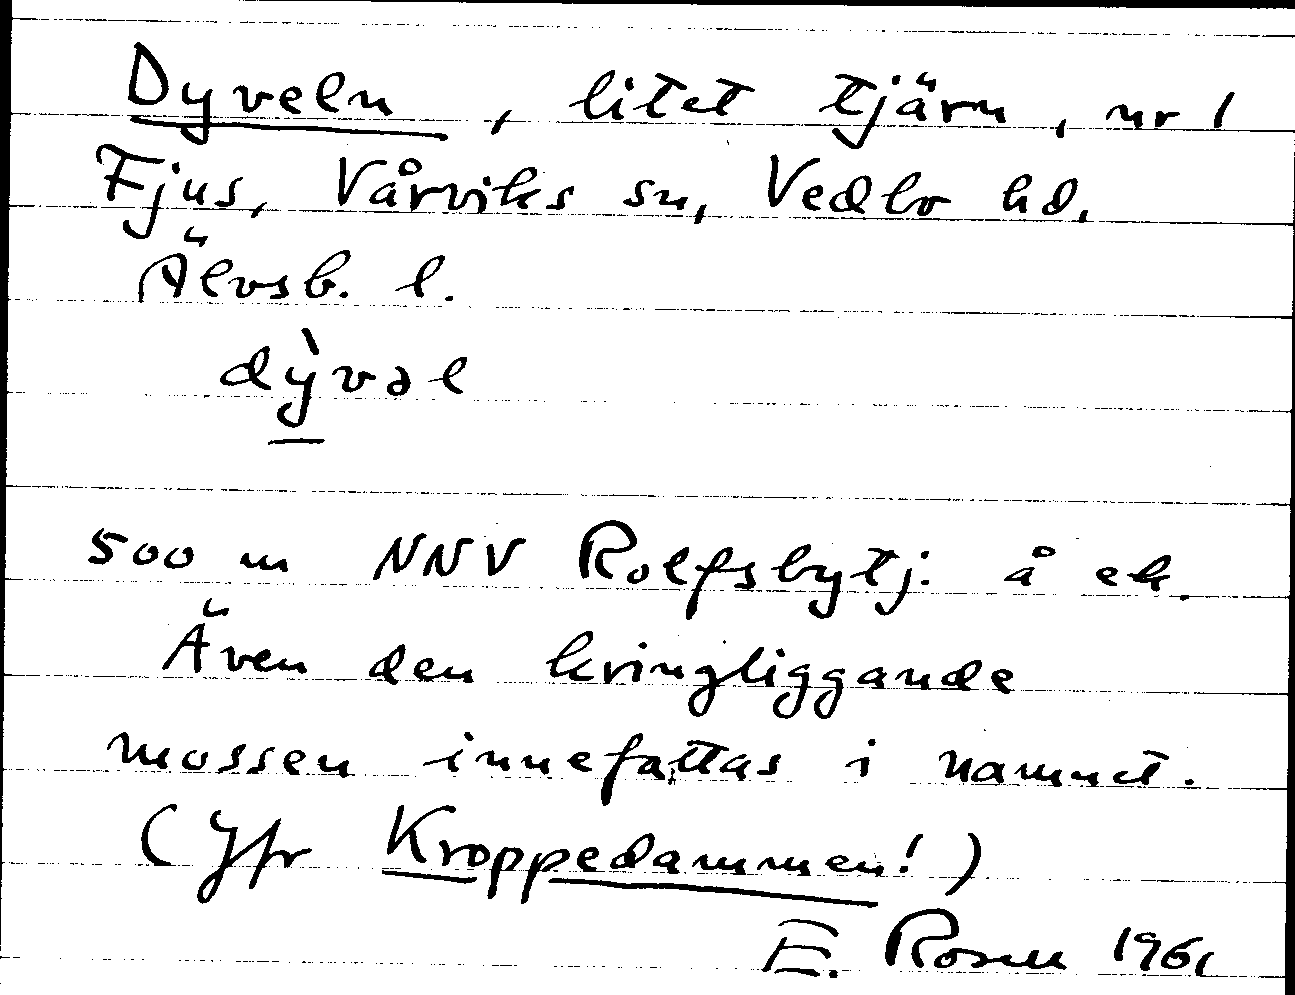 Dyveln, litet tjärn, nr 1
Fjus, Vårviks sn, Vedbo hd,
Älvsb. l.
dỳvəl
500 m NNV Rolfsbytj. å ek.
Även den kringliggande
mossen innefattas i namnet.
(Jfr Kroppedammen!)
E. Rosell 1961